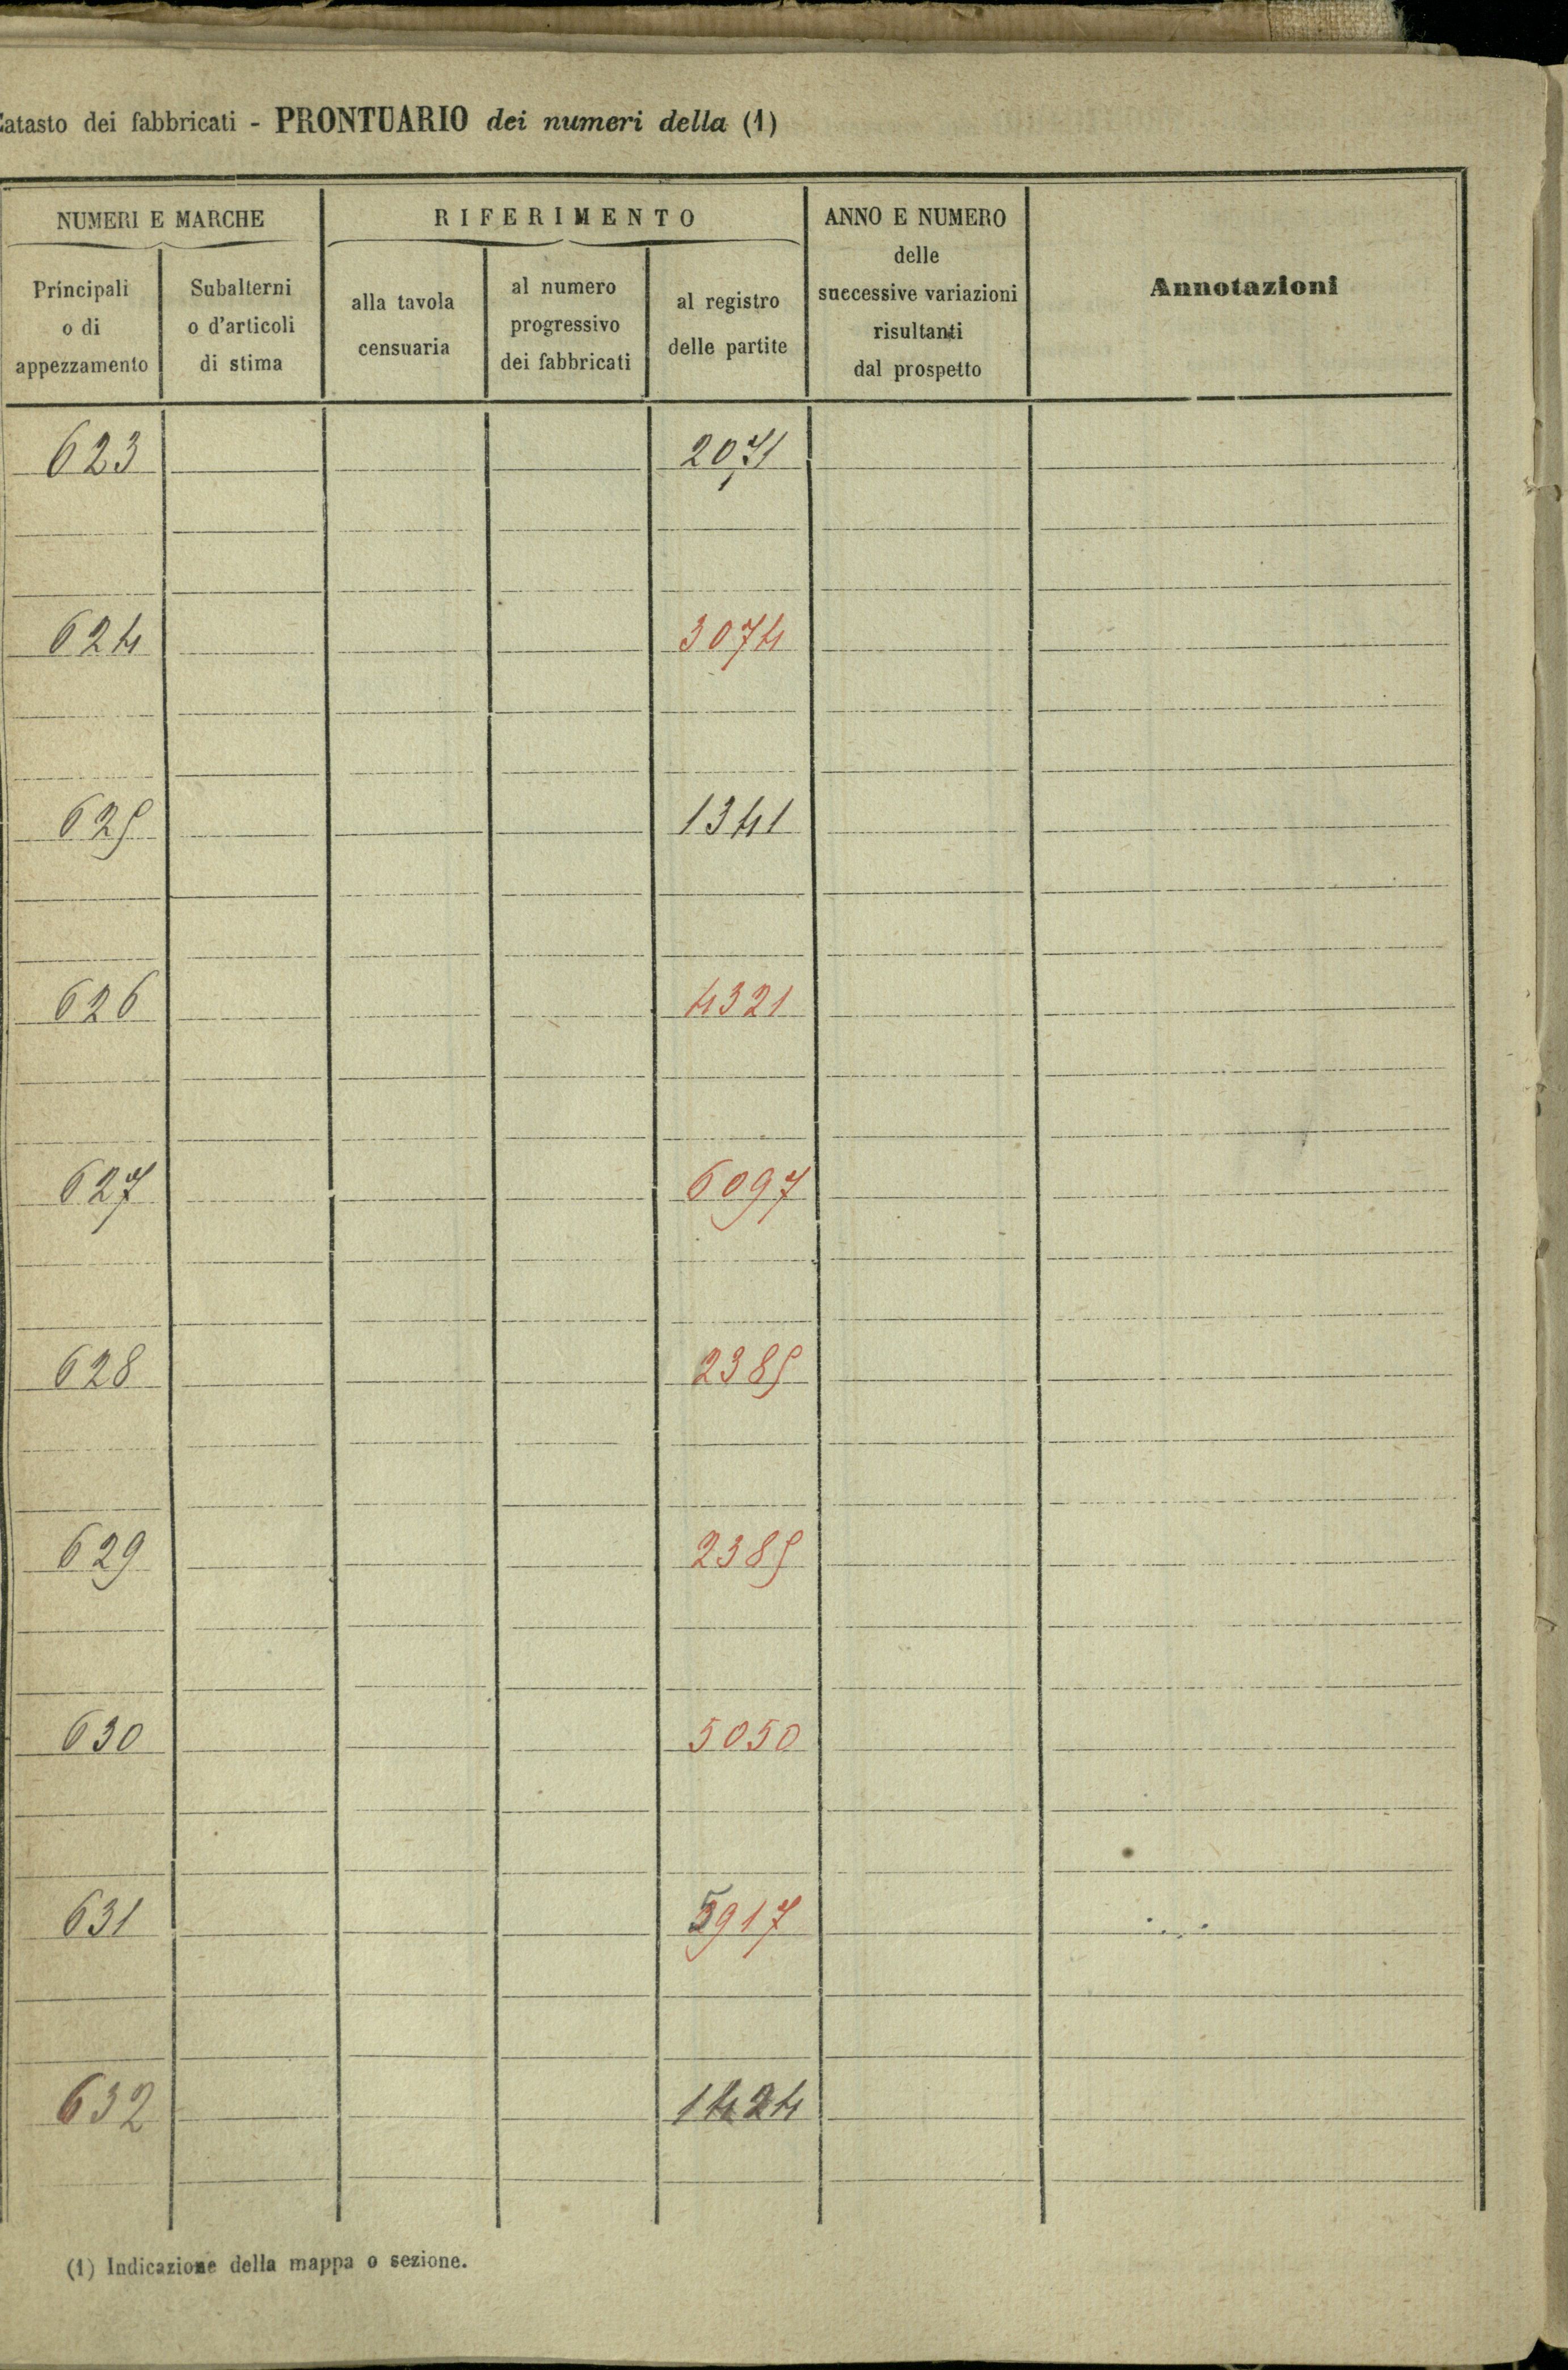 Catasto dei fabbricati - PRONTUARIO dei numeri della (1)
NUMERI E MARCHE
RIFERIMENTO
ANNO E NUMERO
delle
successive variazioni
risultanti
dal prospetto
Annotazioni
Principali
o di
appezzamento
Subalterni
o d'articoli
di stima
alla tavola
censuaria
al numero
progressivo
dei fabbricati
al registro
delle partite
623 2071
624 3074
625 1341
626 4321
627 6097
628 2385
629 2385
630 5050
631 5917
632 1424
(1) Indicazione della mappa o sezione.